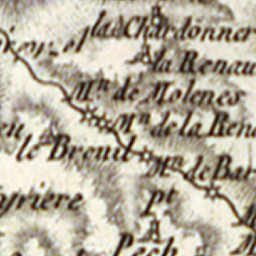 la Chardonner
la Renau
Mⁿ de Molenes
Mⁿ de la Rena
le Breuil
Mⁿ de Bar
yriere
pt
Pech